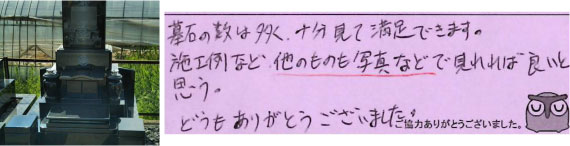 墓石の数は多く、十分見て満足できます。
施工例など、他のものも写真などで見れれば良いと
思う。
どうもありがとうございました。
ご協力ありがとうございました。